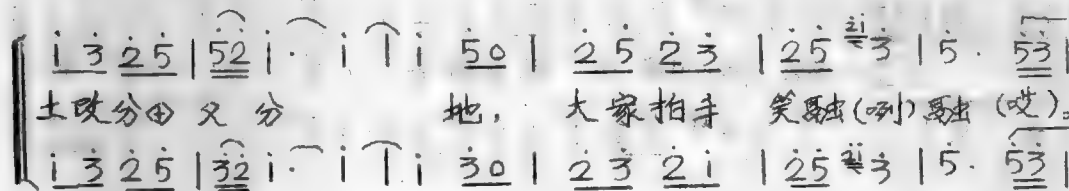 i̇ 3̇ 2̇ 5̇ | 5̇ 2̇ i̇ · i̇ | i̇ 5̇ 0 | 2̇ 5̇ 2̇ 3̇ | 2̇ 5̇ 2̇i̇ 3̇ | 5̇ · 5̇ 3̇ |
土改分田 又 分 地, 大 家 拍手 笑融(咧)融 (哎)。
i̇ 3̇ 2̇ 5̇ | 3̇ 2̇ i̇ · i̇ | i̇ 3̇ 0 | 2̇ 3̇ 2̇ i̇ | 2̇ 5̇ 2̇i̇ 3̇ | 5̇ · 5̇ 3̇ |